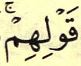 قَوْلِهِمْۚ